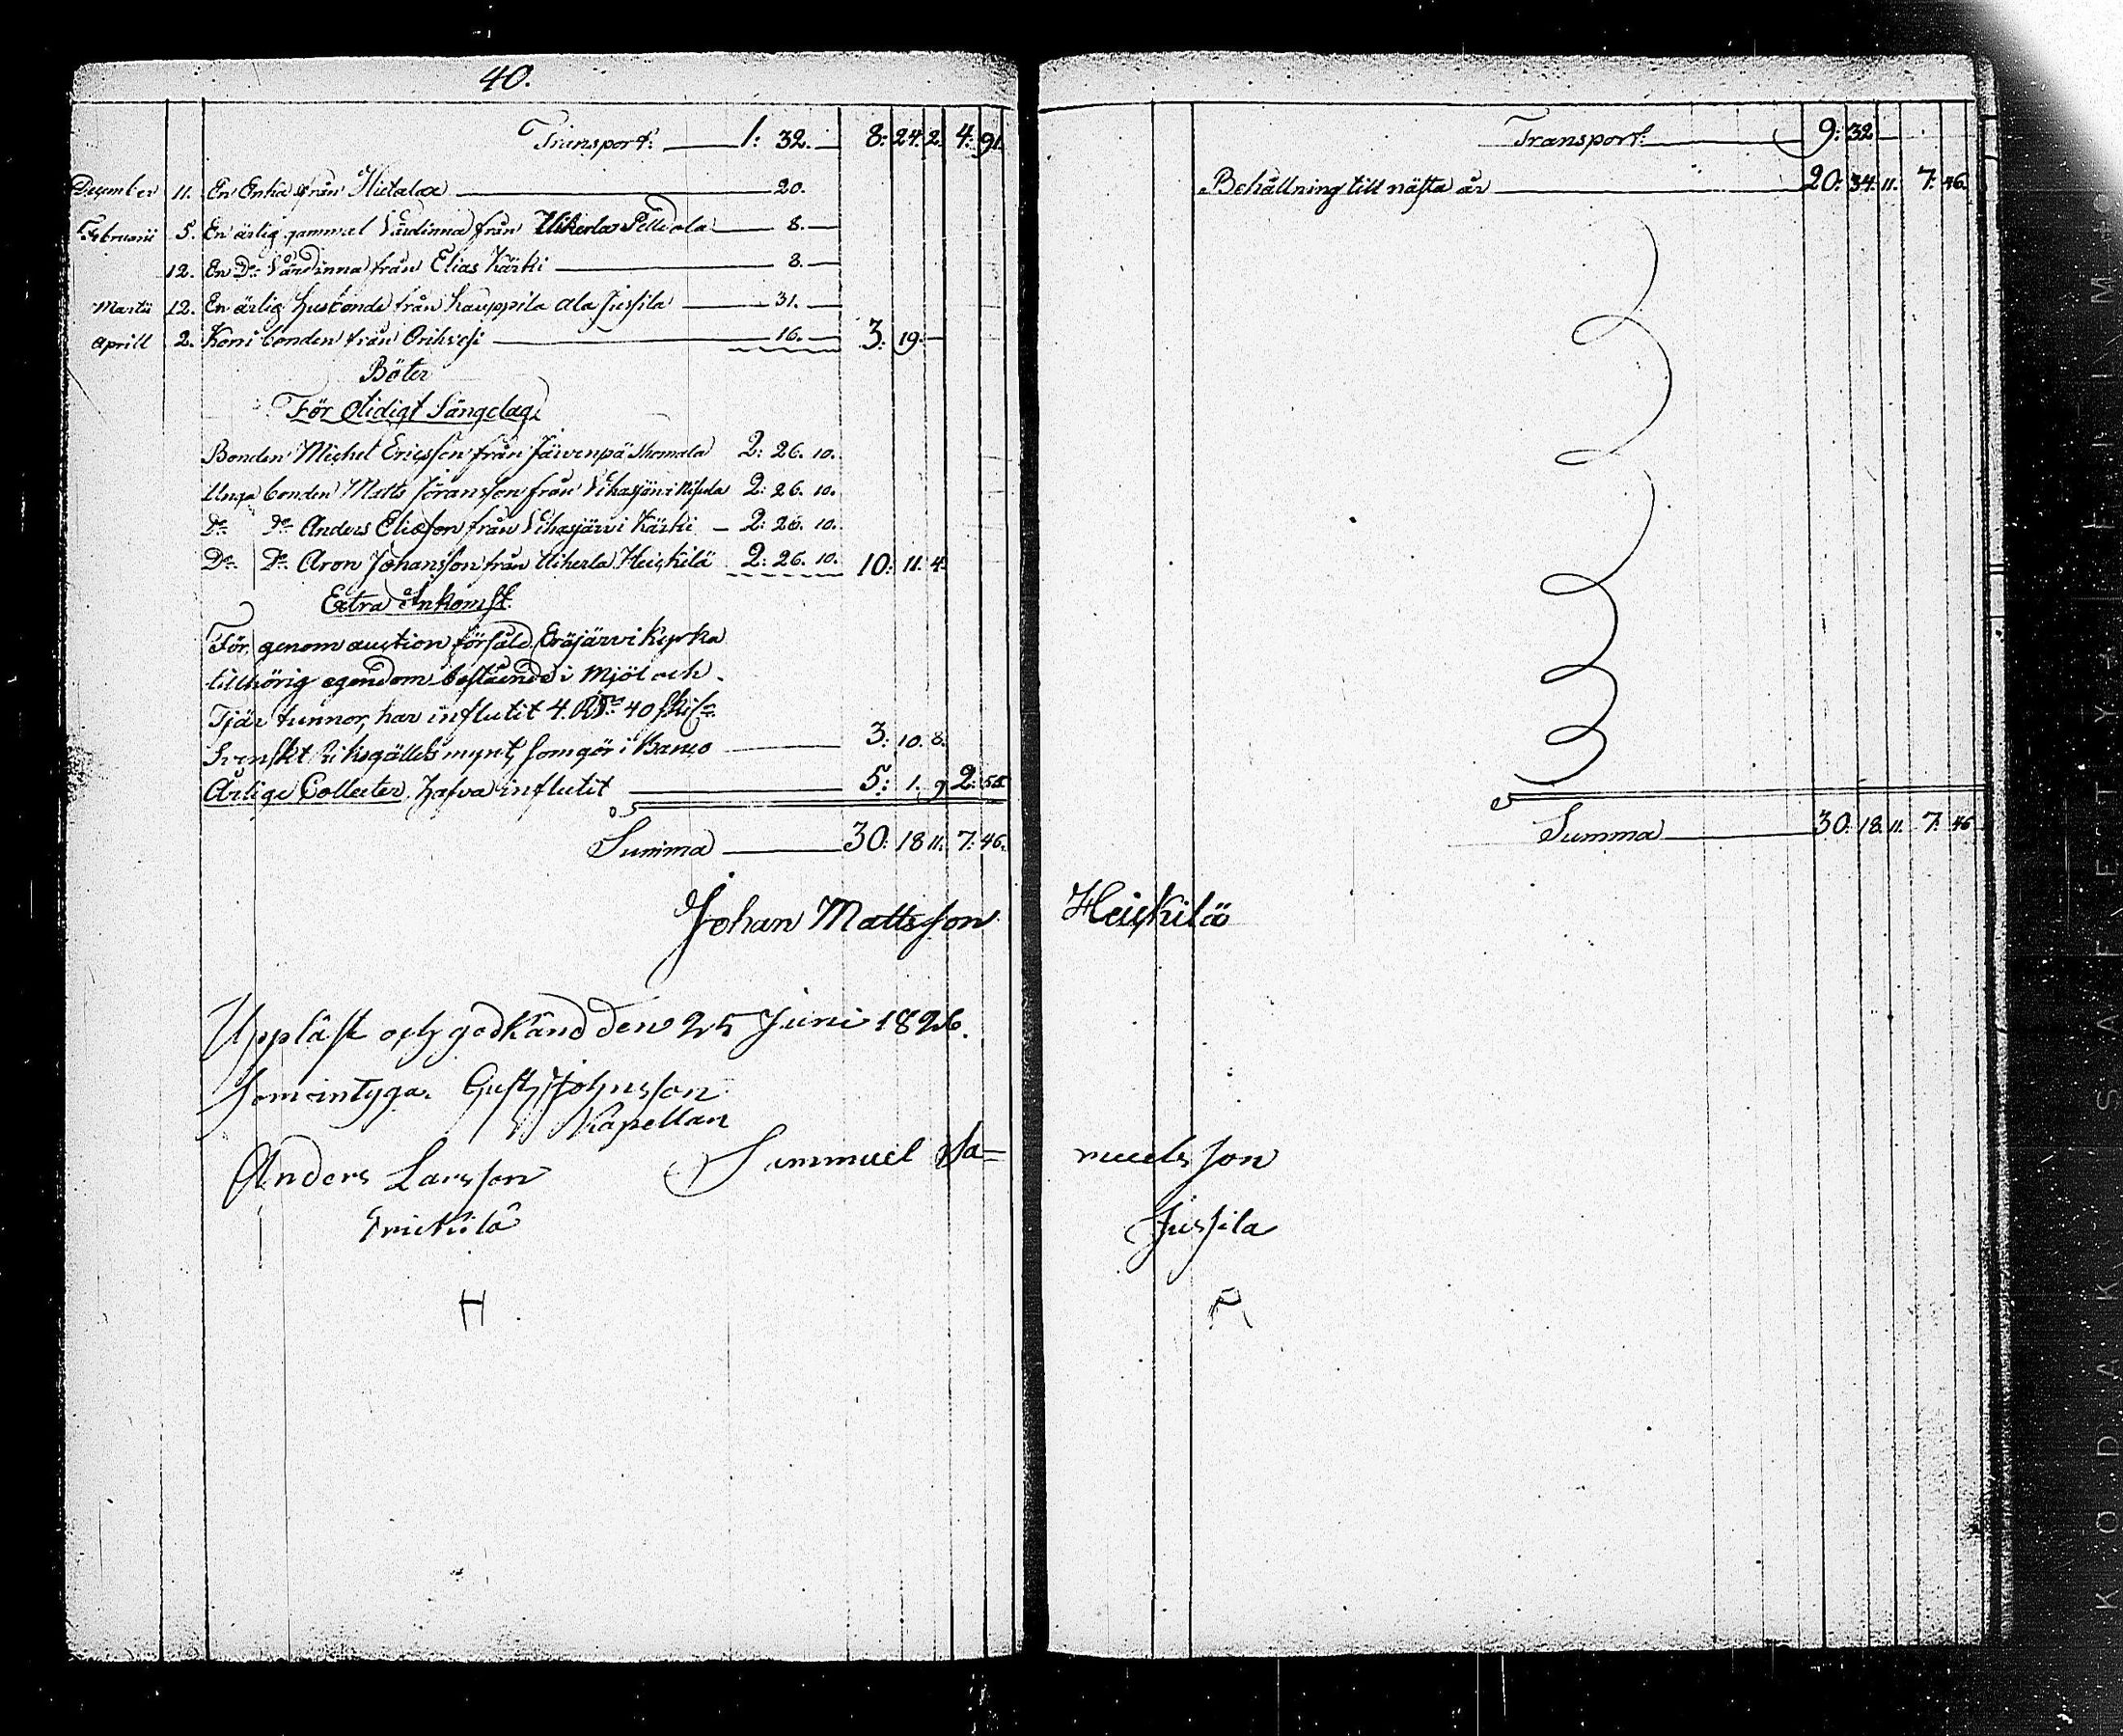 40.
Transport. 1: 32. 8: 24. 2. 4: 91.
December 11. En Enka från Hietala 20.
Februarii 5. En ärlig gammal Värdinna från Uiherla Pelldola 8.
12. En Do Värdinna från Elias Kärki 8.
Martii 12. En ärlig husbonde från Kauppila Ala Jussila 31.
Aprill 2. Korri bonden från Orihvesi 16. 3: 19.
Böter
För Otidigt Sängelag.
Bonden Michel Ericsson från Järvenpä Thomala 2: 26. 10.
Unga bonden Matts Jöransson från Vihasjärvi 2: 26. 10.
Do Do Anders Eliasson från Vihasjärvi Kärki 2: 26. 10.
Do Do Aron Johansson från Uiherla Heickilä 2: 26. 10. 10: 11. 4.
Extra Inkomst.
För, genom auction försåld, Eräjärvi Kyrka
tillhörig egendom bestående i Mjöl och
Tjär tunnor, har influtit 4. RDr 40 skil.
Svenskt Riksgälds mynt, som gör i Banco 3: 10. 8.
Ärlige Collecter, hafva influtit 5: 1. 9 2: 55
Summa 30: 18 11. 7: 46.
Johan Mattsson
Uppläst och godkänd den 25 Juni 1826.
som intygar Gust. Johnsson
Kapellan
Anders Larsson Sammuel Sa=
Erickilä
H
Transport. 9: 32
Behållning till nästa år 20: 34. 11. 7: 46.
Summa 30: 18. 11. 7: 46
Heickilä
muelsson
Jussila
KODAK SAFETY FILM